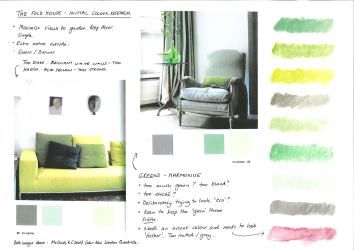 THE FOLD HOUSE - INITIAL COLOUR RESEARCH
• Maximise views to garden, keep decor simple.
• Echo nature outside.
• Green / Brown
TOO DARK. BRILLIANT WHITE WALLS - TOO HARSH. ACID YELLOW - TOO STRONG.
GREENS - HARMONIOUS
• too much green? too bland?
• too cliché?
• Deliberately trying to look 'eco'?
• Keen to keep the 'green' theme subtle.
• Needs an accent colour and needs to look 'fresher'. Too muted / grey.
Both images above :